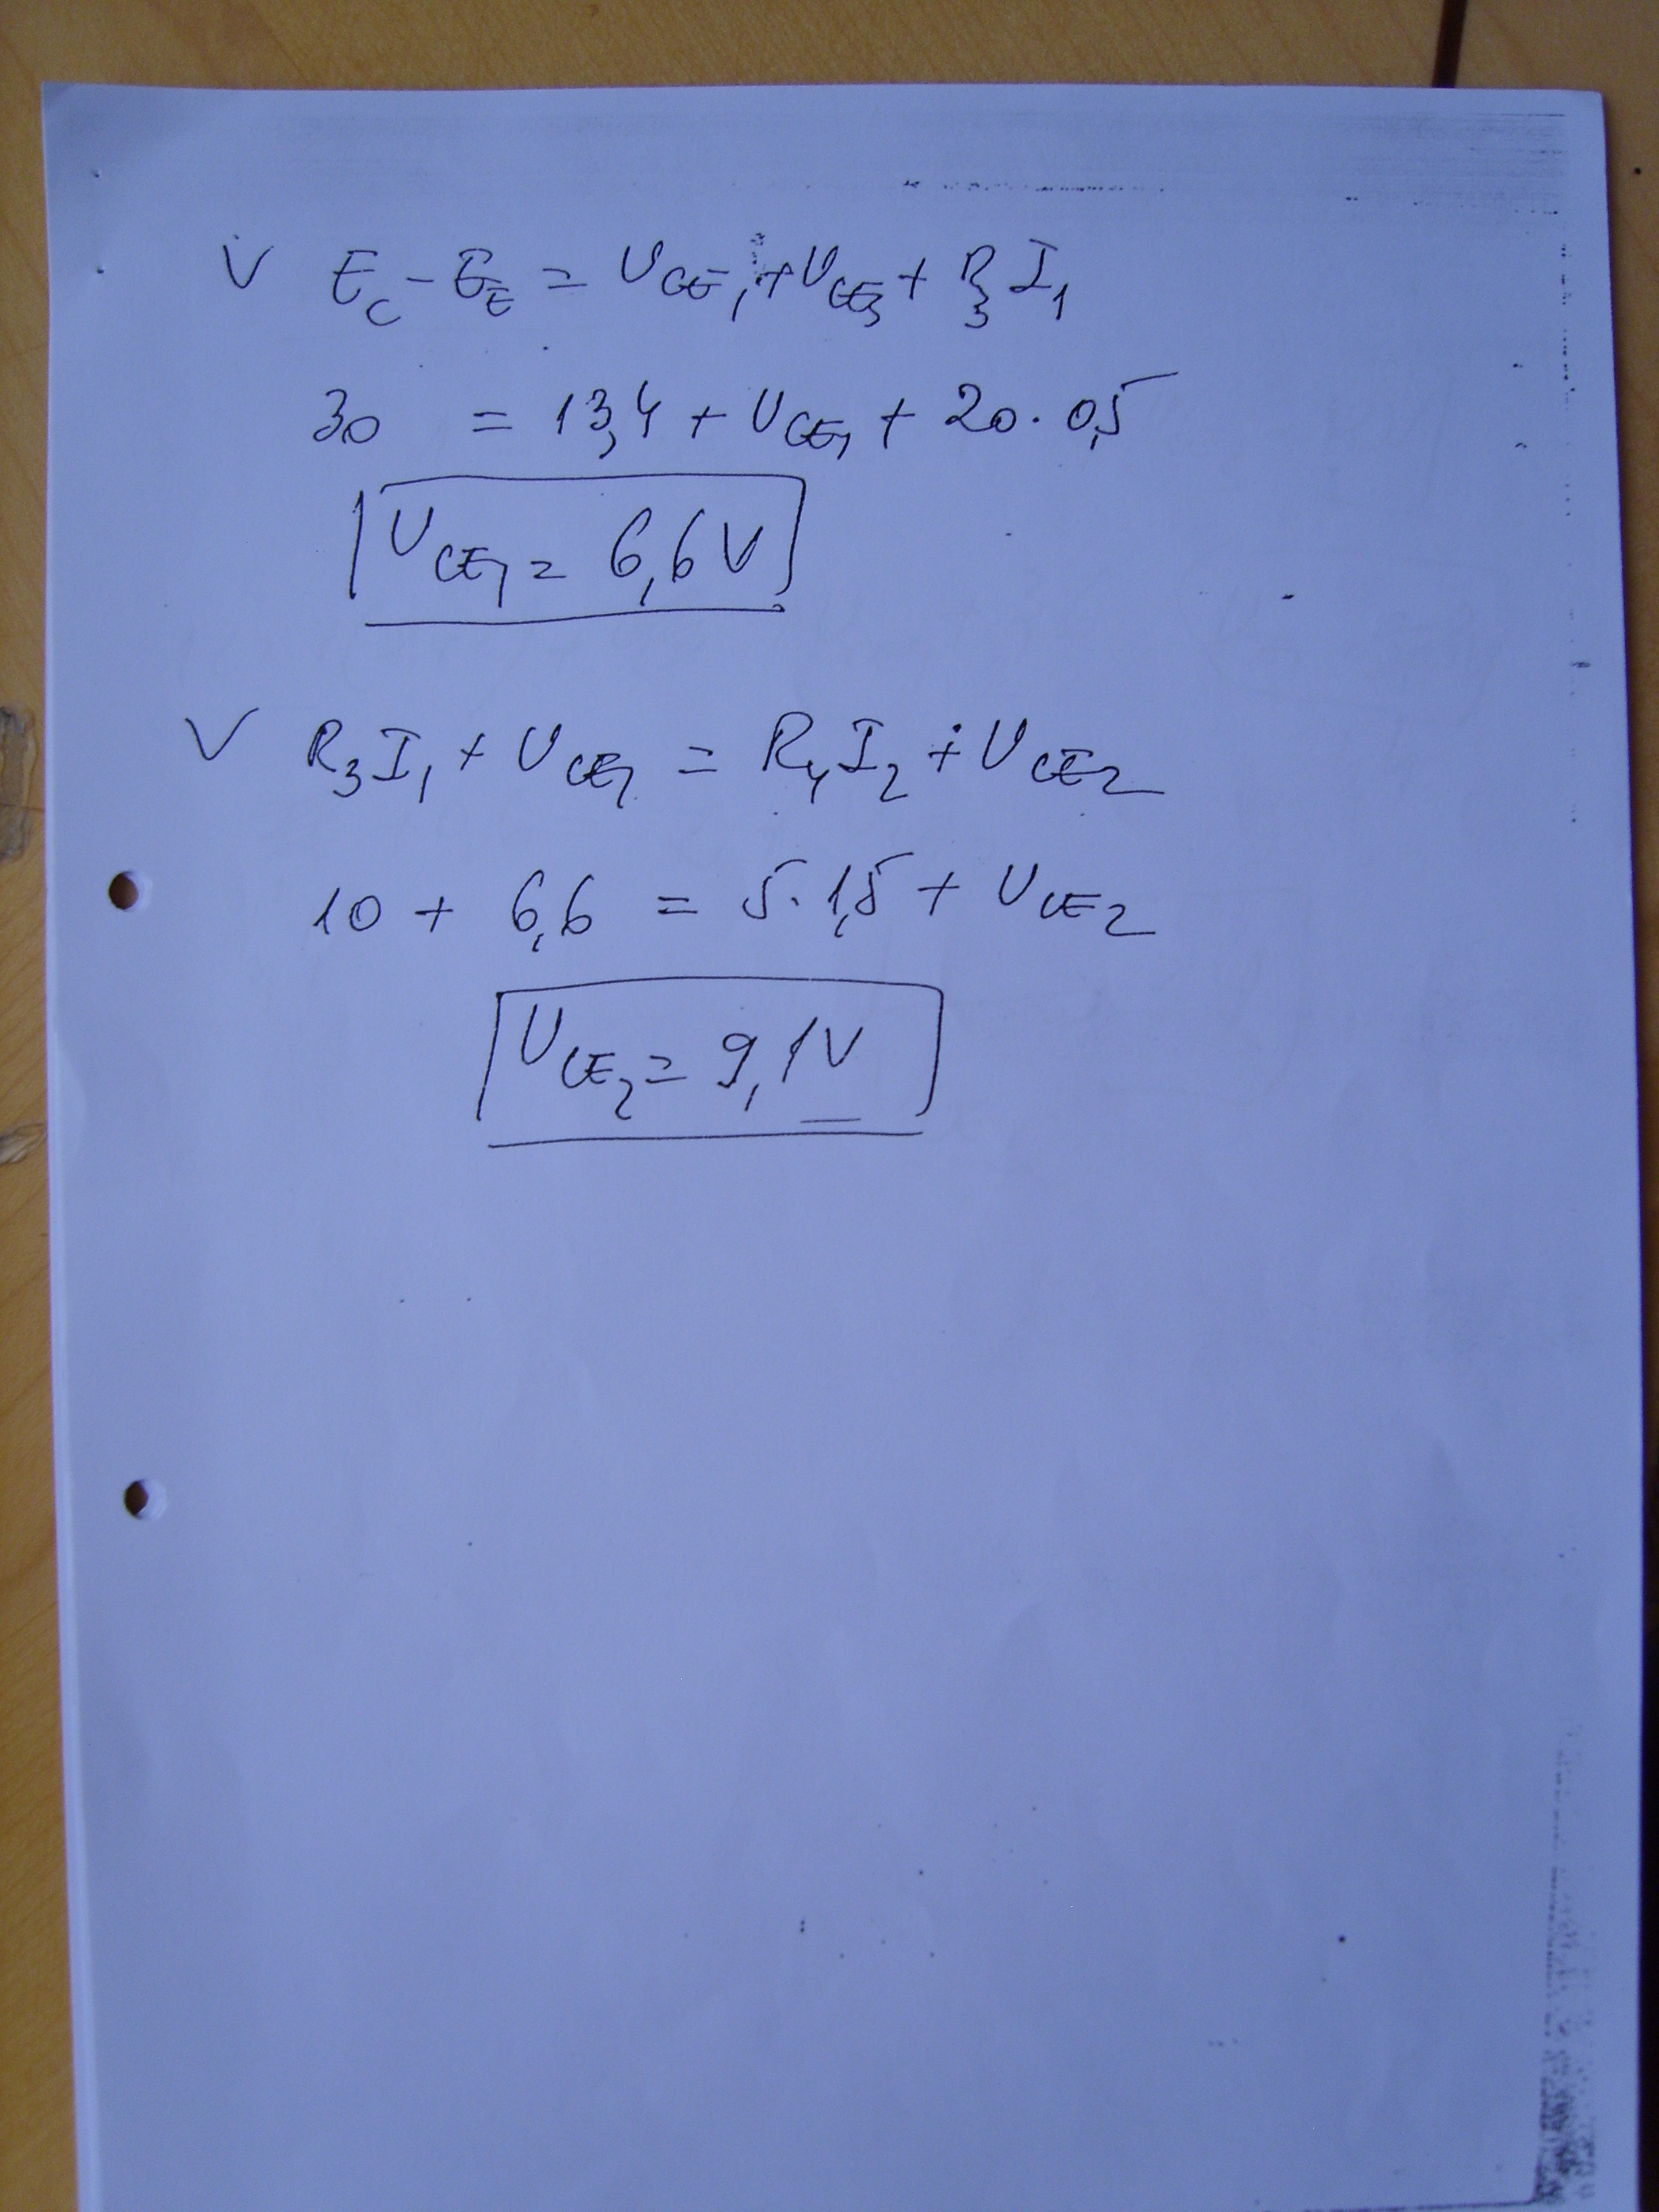 V E_C - E_E = U_CE1 + U_CE3 + R_3 I_1
30 = 13,4 + U_CE1 + 20 · 0,5
U_CE1 = 6,6 V
V R_3 I_1 + U_CE1 = R_4 I_2 + U_CE2
10 + 6,6 = 5 · 1,5 + U_CE2
U_CE2 = 9,1 V